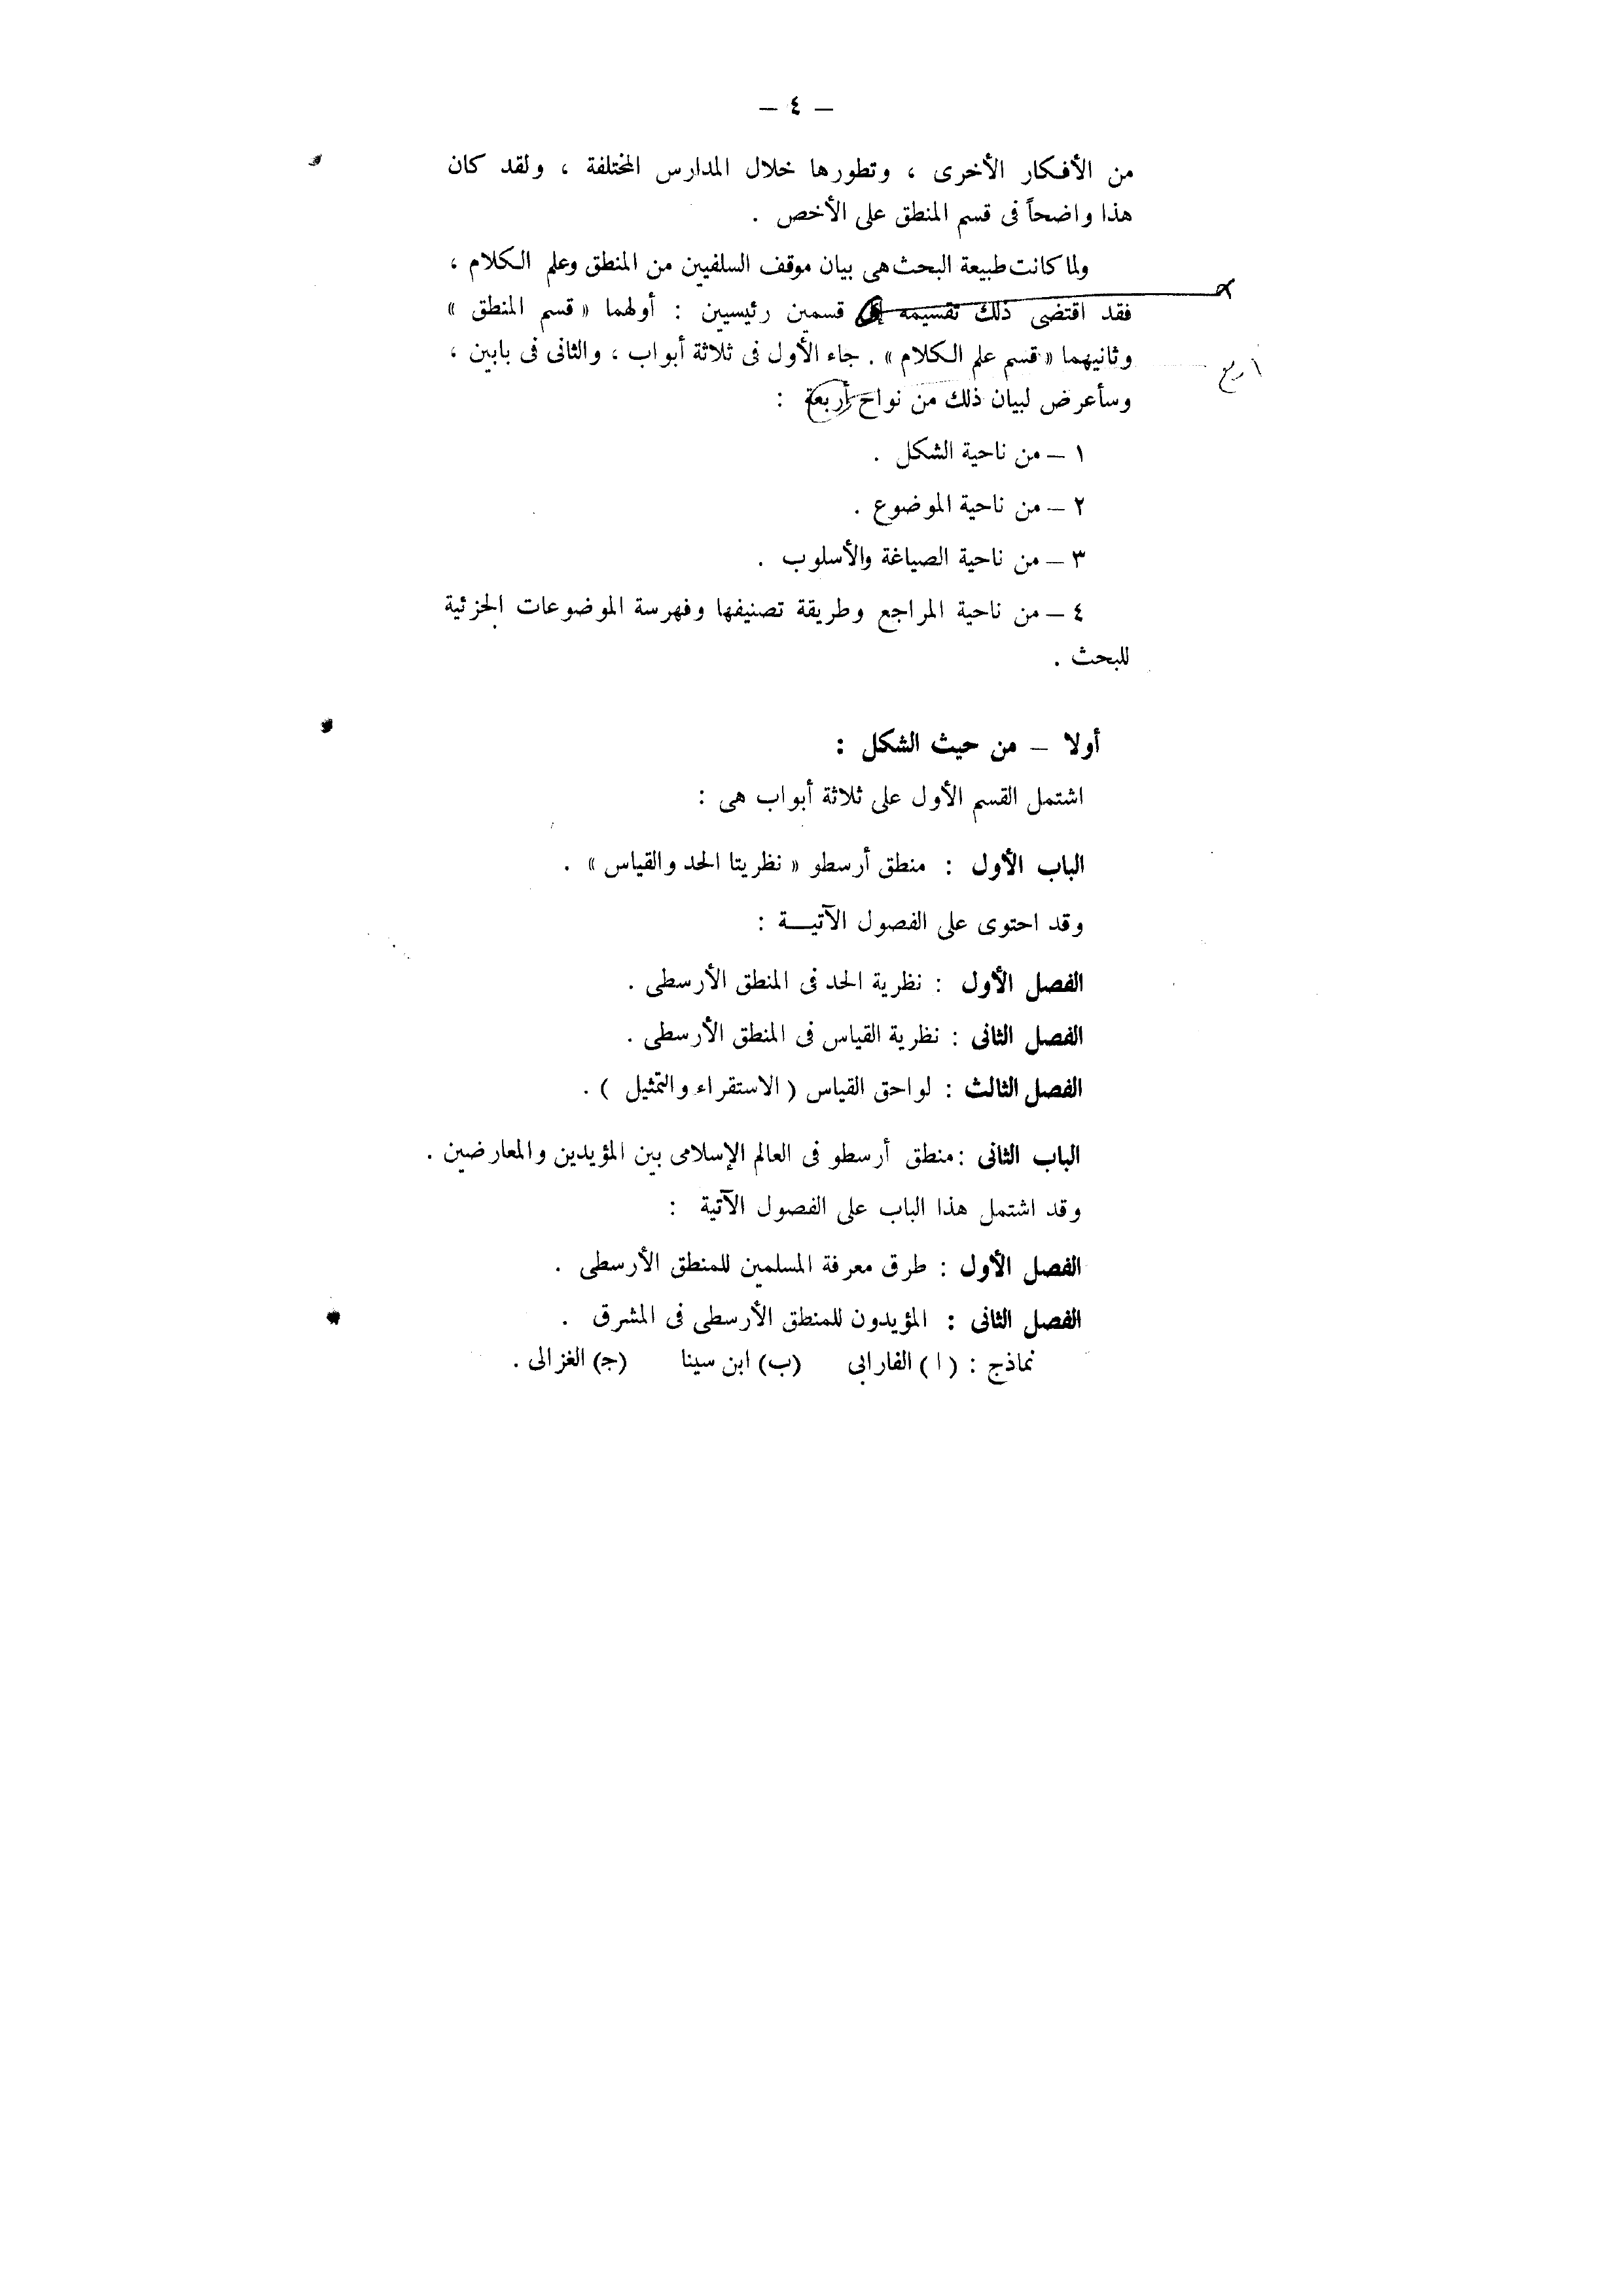 — ٤ —
من الأفكار الأخرى ، وتطورها خلال المدارس المختلفة ، ولقد كان
هذا واضحاً فى قسم المنطق على الأخص .
ولما كانت طبيعة البحث هى بيان موقف السلفيين من المنطق وعلم الكلام ،
فقد اقتضى ذلك تقسيمه قسمين رئيسيين : أولهما « قسم المنطق »
وثانيهما « قسم علم الكلام » . جاء الأول فى ثلاثة أبواب ، والثانى فى بابين ،
اربع
وسأعرض لبيان ذلك من نواح أربعة :
١ — من ناحية الشكل .
٢ — من ناحية الموضوع .
٣ — من ناحية الصياغة والأسلوب .
٤ — من ناحية المراجع وطريقة تصنيفها وفهرسة الموضوعات الجزئية
للبحث .
أولا — من حيث الشكل :
اشتمل القسم الأول على ثلاثة أبواب هى :
الباب الأول : منطق أرسطو « نظريتا الحد والقياس » .
وقد احتوى على الفصول الآتيــة :
الفصل الأول : نظرية الحد فى المنطق الأرسطى .
الفصل الثانى : نظرية القياس فى المنطق الأرسطى .
الفصل الثالث : لواحق القياس ( الاستقراء والتمثيل ) .
الباب الثانى : منطق أرسطو فى العالم الإسلامى بين المؤيدين والمعارضين .
وقد اشتمل هذا الباب على الفصول الآتية :
الفصل الأول : طرق معرفة المسلمين للمنطق الأرسطى .
الفصل الثانى : المؤيدون للمنطق الأرسطى فى المشرق .
نماذج : ( ا ) الفارابى (ب) ابن سينا (ج) الغزالى .